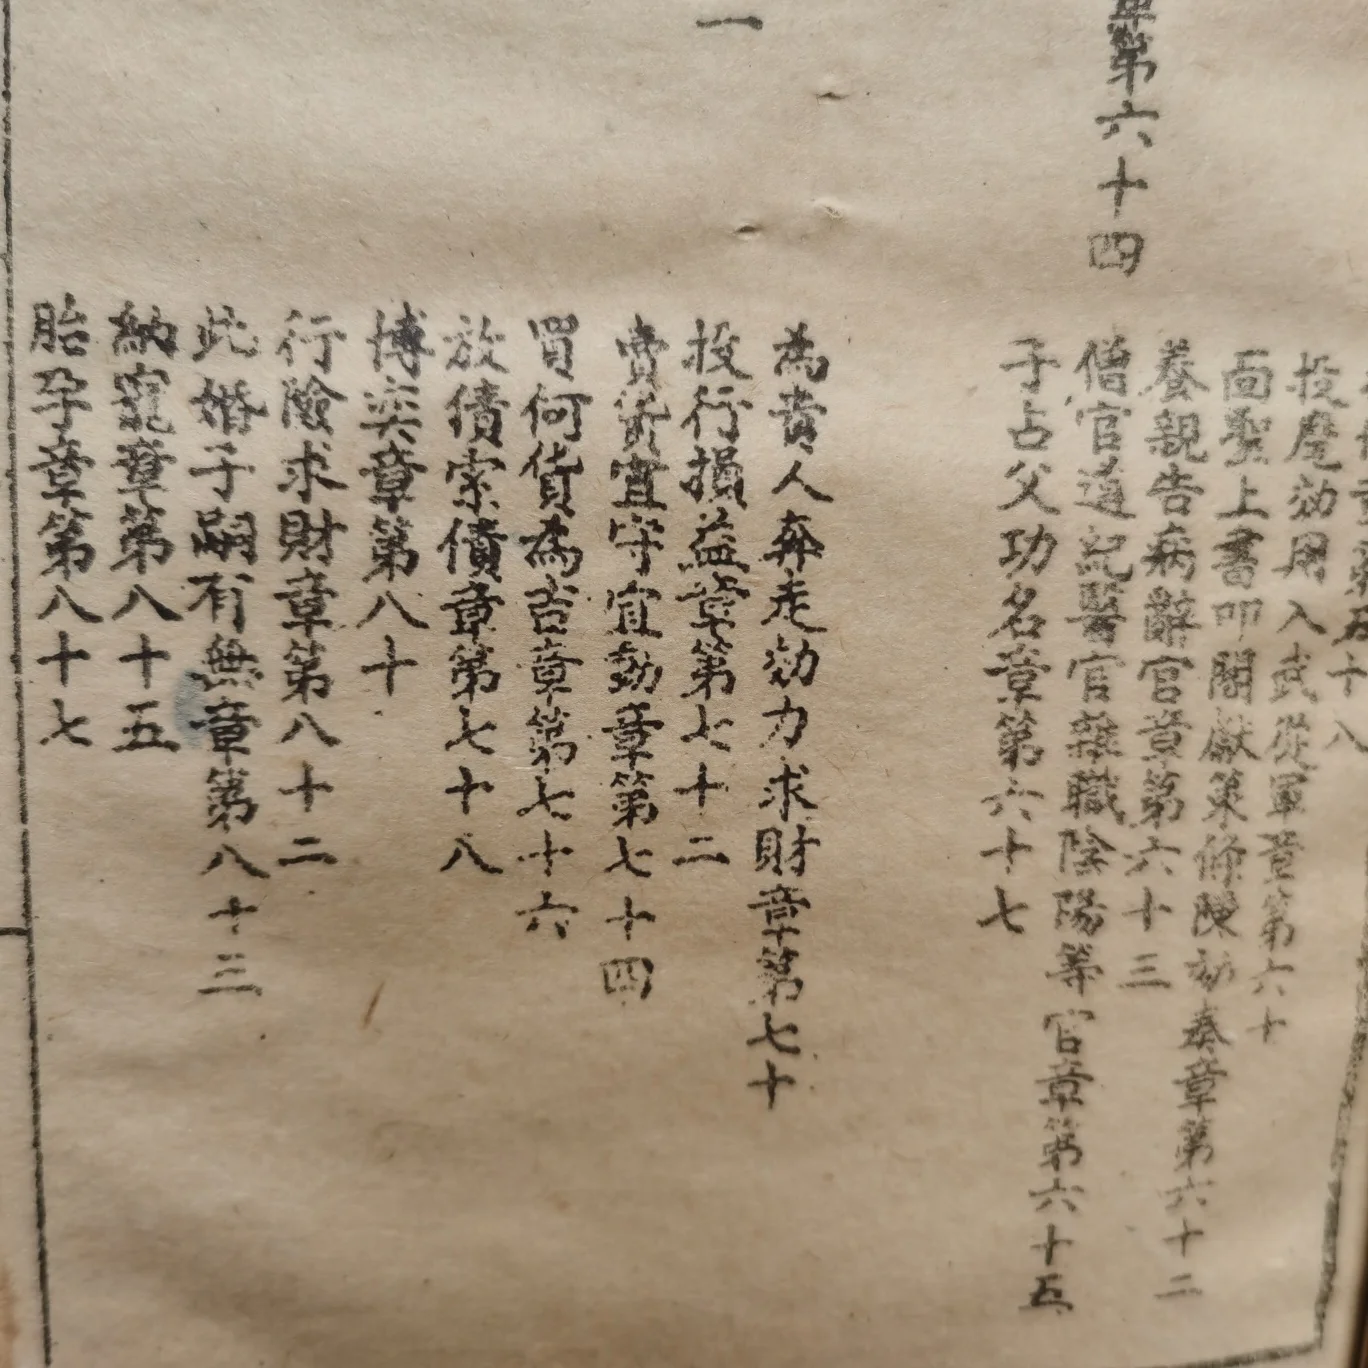 章第五十八
投麾効用入武從軍章第六十
面聖上書叩閽獻策條陳劾奏章第六十二
養親告病辭官章第六十三
章第六十四
僧官道紀醫官雜職陰陽等官章第六十五
子占父功名章第六十七
一
為貴人奔走効力求財章第七十
投行損益章第七十二
賣貨宜守宜動章第七十四
買何貨為吉章第七十六
放債索債章第七十八
博奕章第八十
行險求財章第八十二
此婚子嗣有無章第八十三
納寵章第八十五
胎孕章第八十七